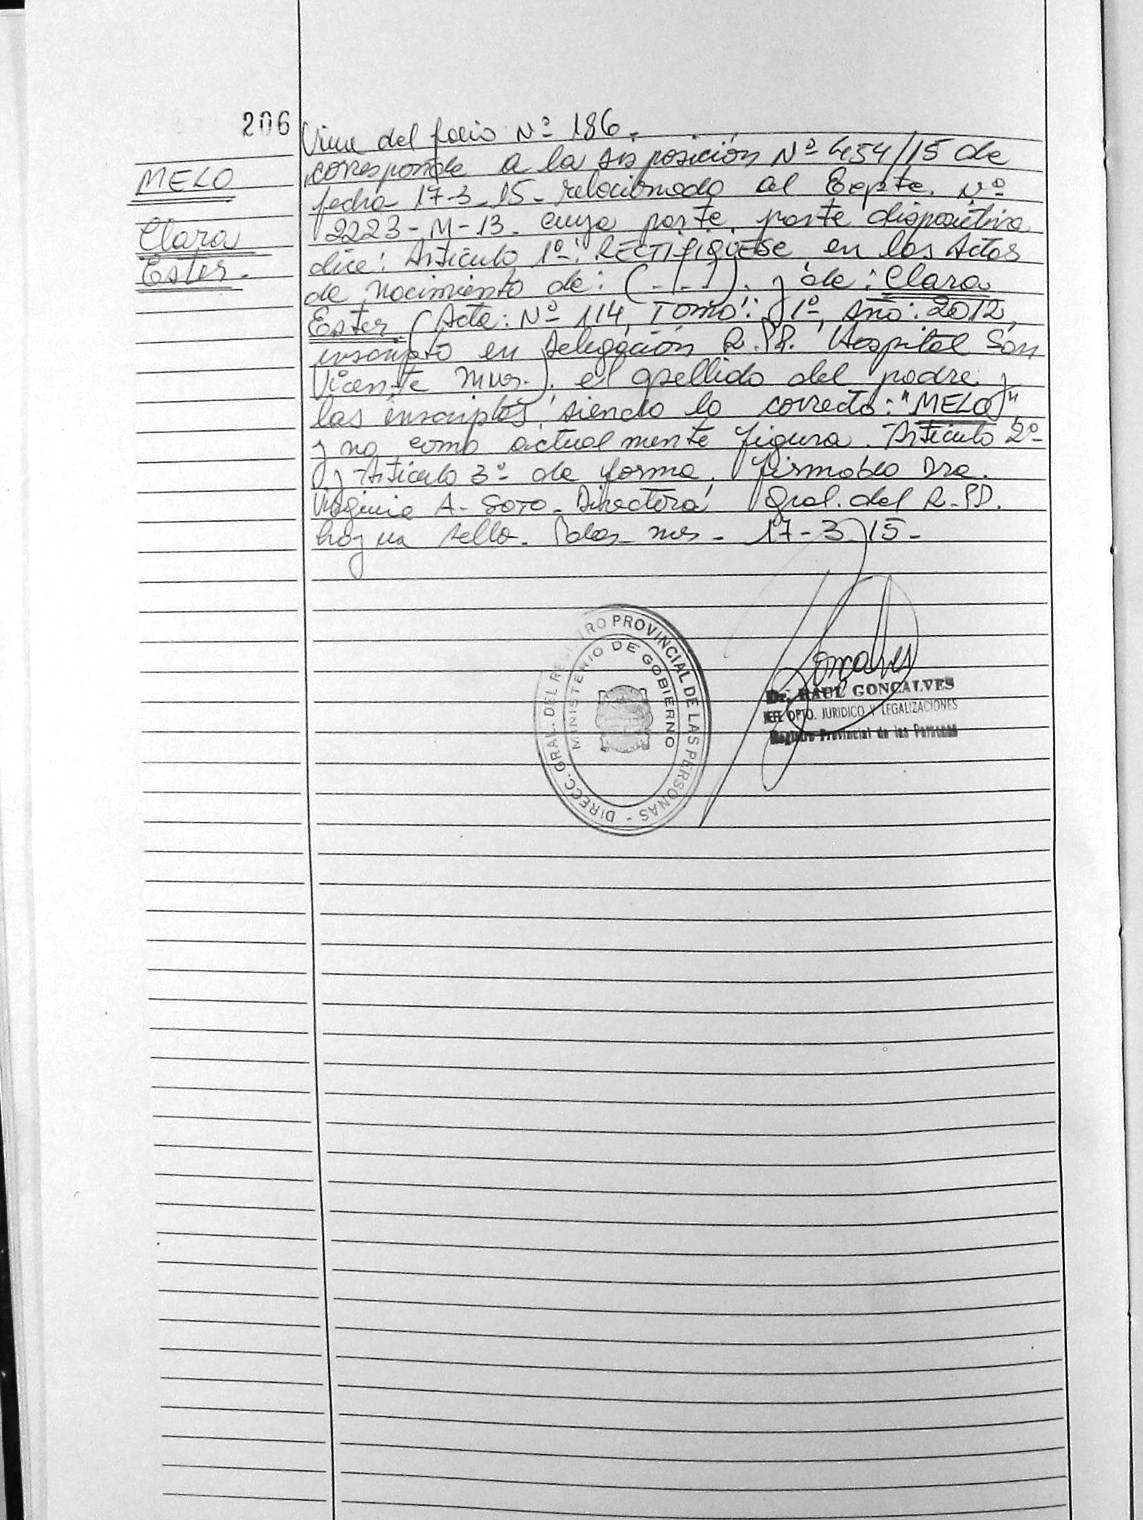 206
MELO
Clara
Ester.
Viene del folio Nº 186.
corresponde a la disposición Nº 454/15 de
fecha 17-3-15- relacionado al Expte. Nº
2223-M-13- cuya parte parte dispositiva
dice: Artículo 1º: RECTIFIQUESE en las Actas
de nacimiento de: (---). y de: Clara
Ester (Acta: Nº 114, Tomo: 1º, Año: 2012,
inscripto en Delegación R.PP. Hospital San
Vicente Mnes.). el apellido del padre y
las inscriptas, siendo lo correcto: "MELO"
y no como actualmente figura. Artículo 2º
y Artículo 3º de forma. firmado Dra.
Virginia A. SOTO. Directora Gral. del R.PP.
hay un sello. Pdas. Mnes. 17-3-15-
DIRECC. GRAL. DEL REGISTRO PROVINCIAL DE LAS PERSONAS -
MINISTERIO DE GOBIERNO
Goncalves
Dr. RAUL GONCALVES
JEFE DPTO. JURIDICO Y LEGALIZACIONES
Registro Provincial de las Personas